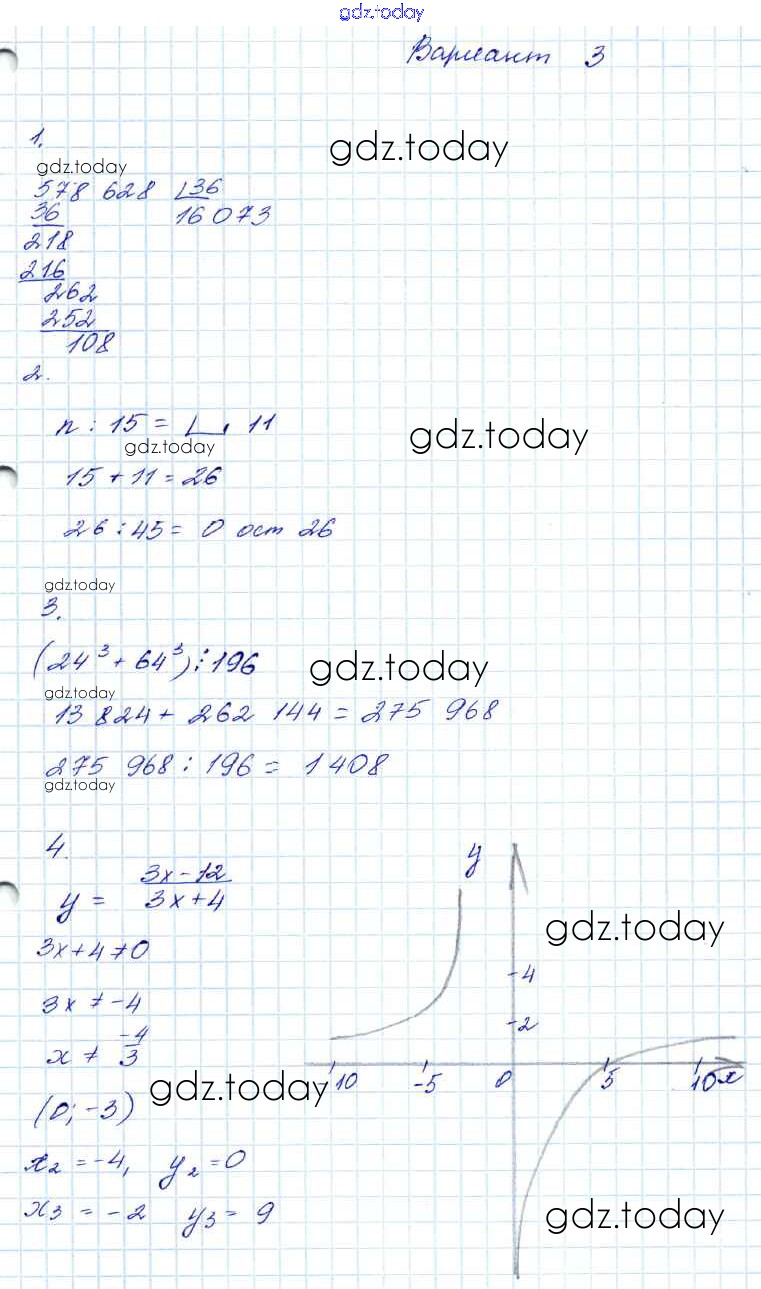 gdz.today
Вариант 3
1.
gdz.today
gdz.today
578 628 36
36 16 073
218
216
262
252
108
2.
n : 15 = , 11
gdz.today
gdz.today
15 + 11 = 26
26 : 45 = 0 ост 26
gdz.today
3.
(24³ + 64³) ⋮ 196
gdz.today
gdz.today
13 824 + 262 144 = 275 968
275 968 : 196 = 1408
gdz.today
4.
y = \frac{3x-12}{3x+4}
3x+4 ≠ 0
3x ≠ -4
x ≠ \frac{-4}{3}
(0; -3)
x₂ = -4, y₂ = 0
x₃ = -2 y₃ = 9
y
gdz.today
-4
-2
-10 -5 0 5 10 x
gdz.today
gdz.today